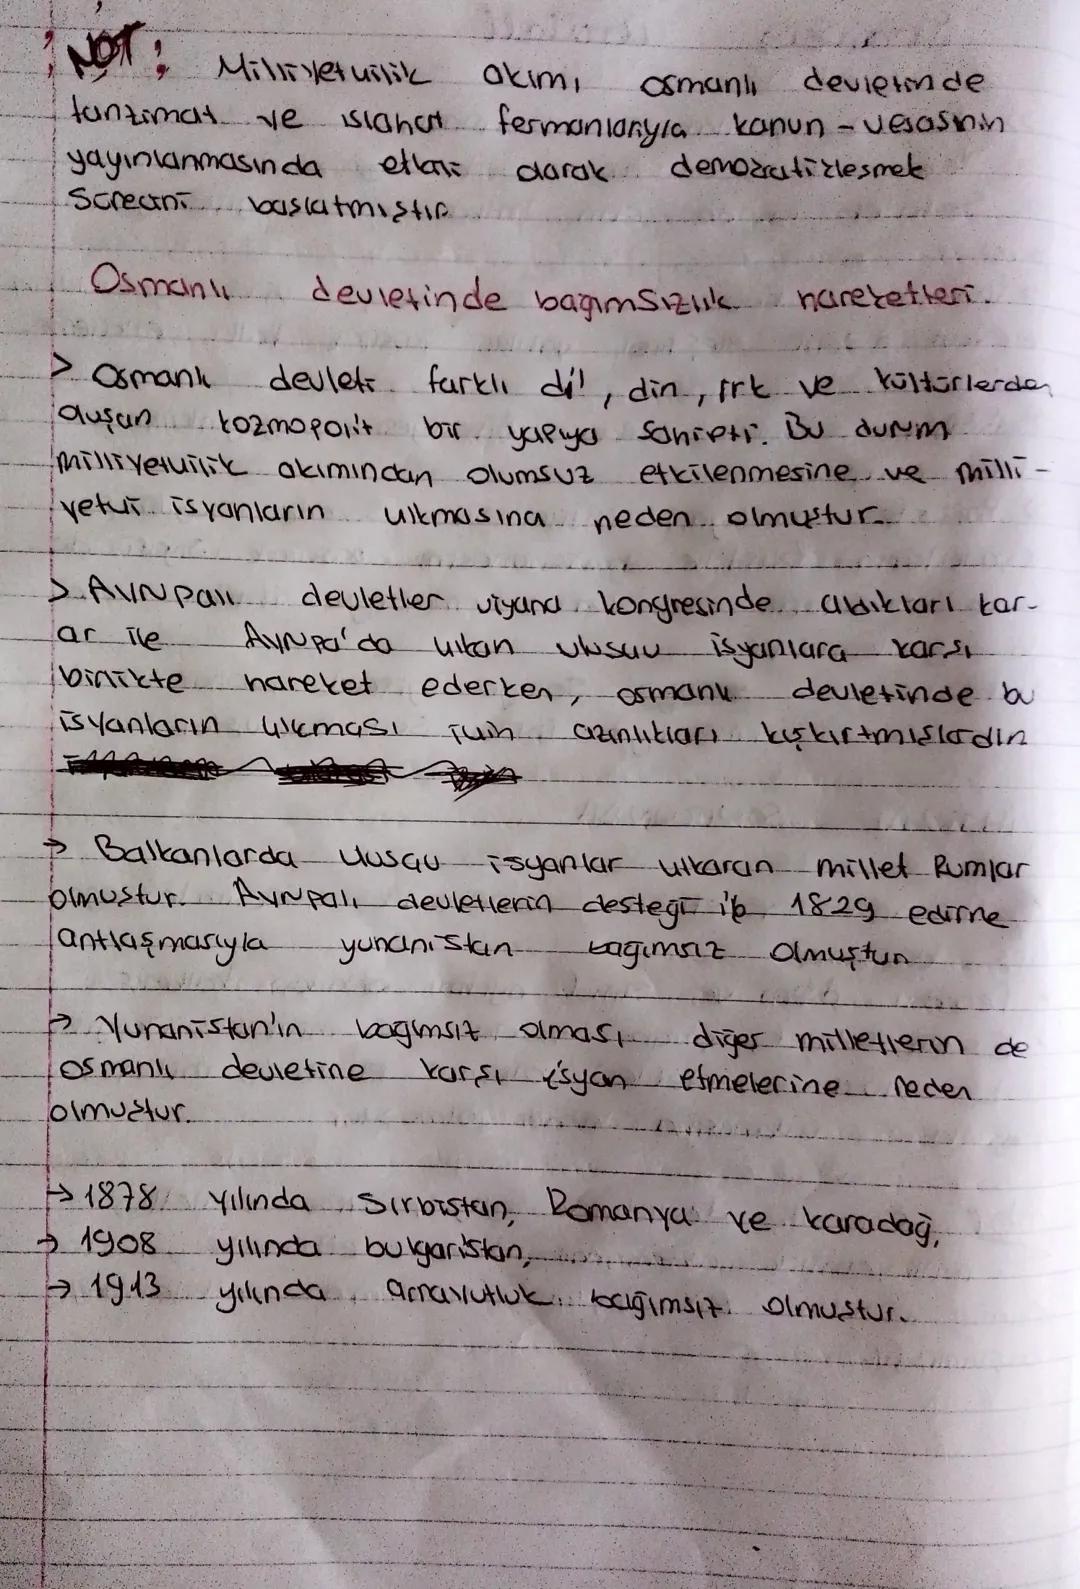 NOT: Milliyetçilik akımı osmanlı devletinde
tanzimat ve ıslahat fermanlarıyla kanun-i esasinin
yayınlanmasında etkili olarak demokratikleşmek
sürecini başlatmıştır.
Osmanlı devletinde bağımsızlık hareketleri.
> Osmanlı devleti farklı dil, din, ırk ve kültürlerden
oluşan kozmopolit bir yapıya sahipti. Bu durum
milliyetçilik akımından olumsuz etkilenmesine ve milli-
yetçi isyanların çıkmasına neden olmuştur.
> Avrupalı devletler viyana kongresinde aldıkları kar-
ar ile Avrupa'da çıkan ulusçu isyanlara karşı
birlikte hareket ederken, osmanlı devletinde bu
isyanların çıkması için azınlıkları kışkırtmışlardır
→ Balkanlarda ulusçu isyanlar çıkaran millet Rumlar
olmuştur. Avrupalı devletlerin desteği ile 1829 edirne
antlaşmasıyla yunanistan bağımsız olmuştur
→ Yunanistan'ın bağımsız olması diğer milletlerin de
osmanlı devletine karşı isyan etmelerine neden
olmuştur.
→ 1878 yılında Sırbistan, Romanya ve karadağ,
→ 1908 yılında bulgaristan,
→ 1913 yılında arnavutluk bağımsız olmuştur.